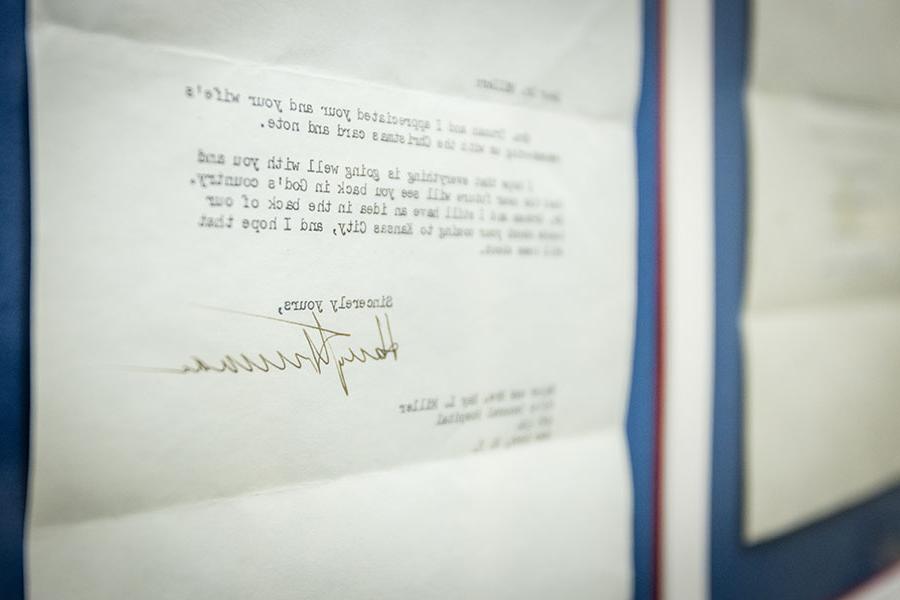 Dear Dr. Miller:
Mrs. Truman and I appreciated your and your wife's
remembering us with the Christmas card and note.
I hope that everything is going well with you and
that the near future will see you back in God's country.
Dr. Graham and I still have an idea in the back of our
heads about your coming to Kansas City, and I hope that
will come about.
Sincerely yours,
Harry Truman
Major and Mrs. Roy L. Miller
General Hospital
New York, N. Y.